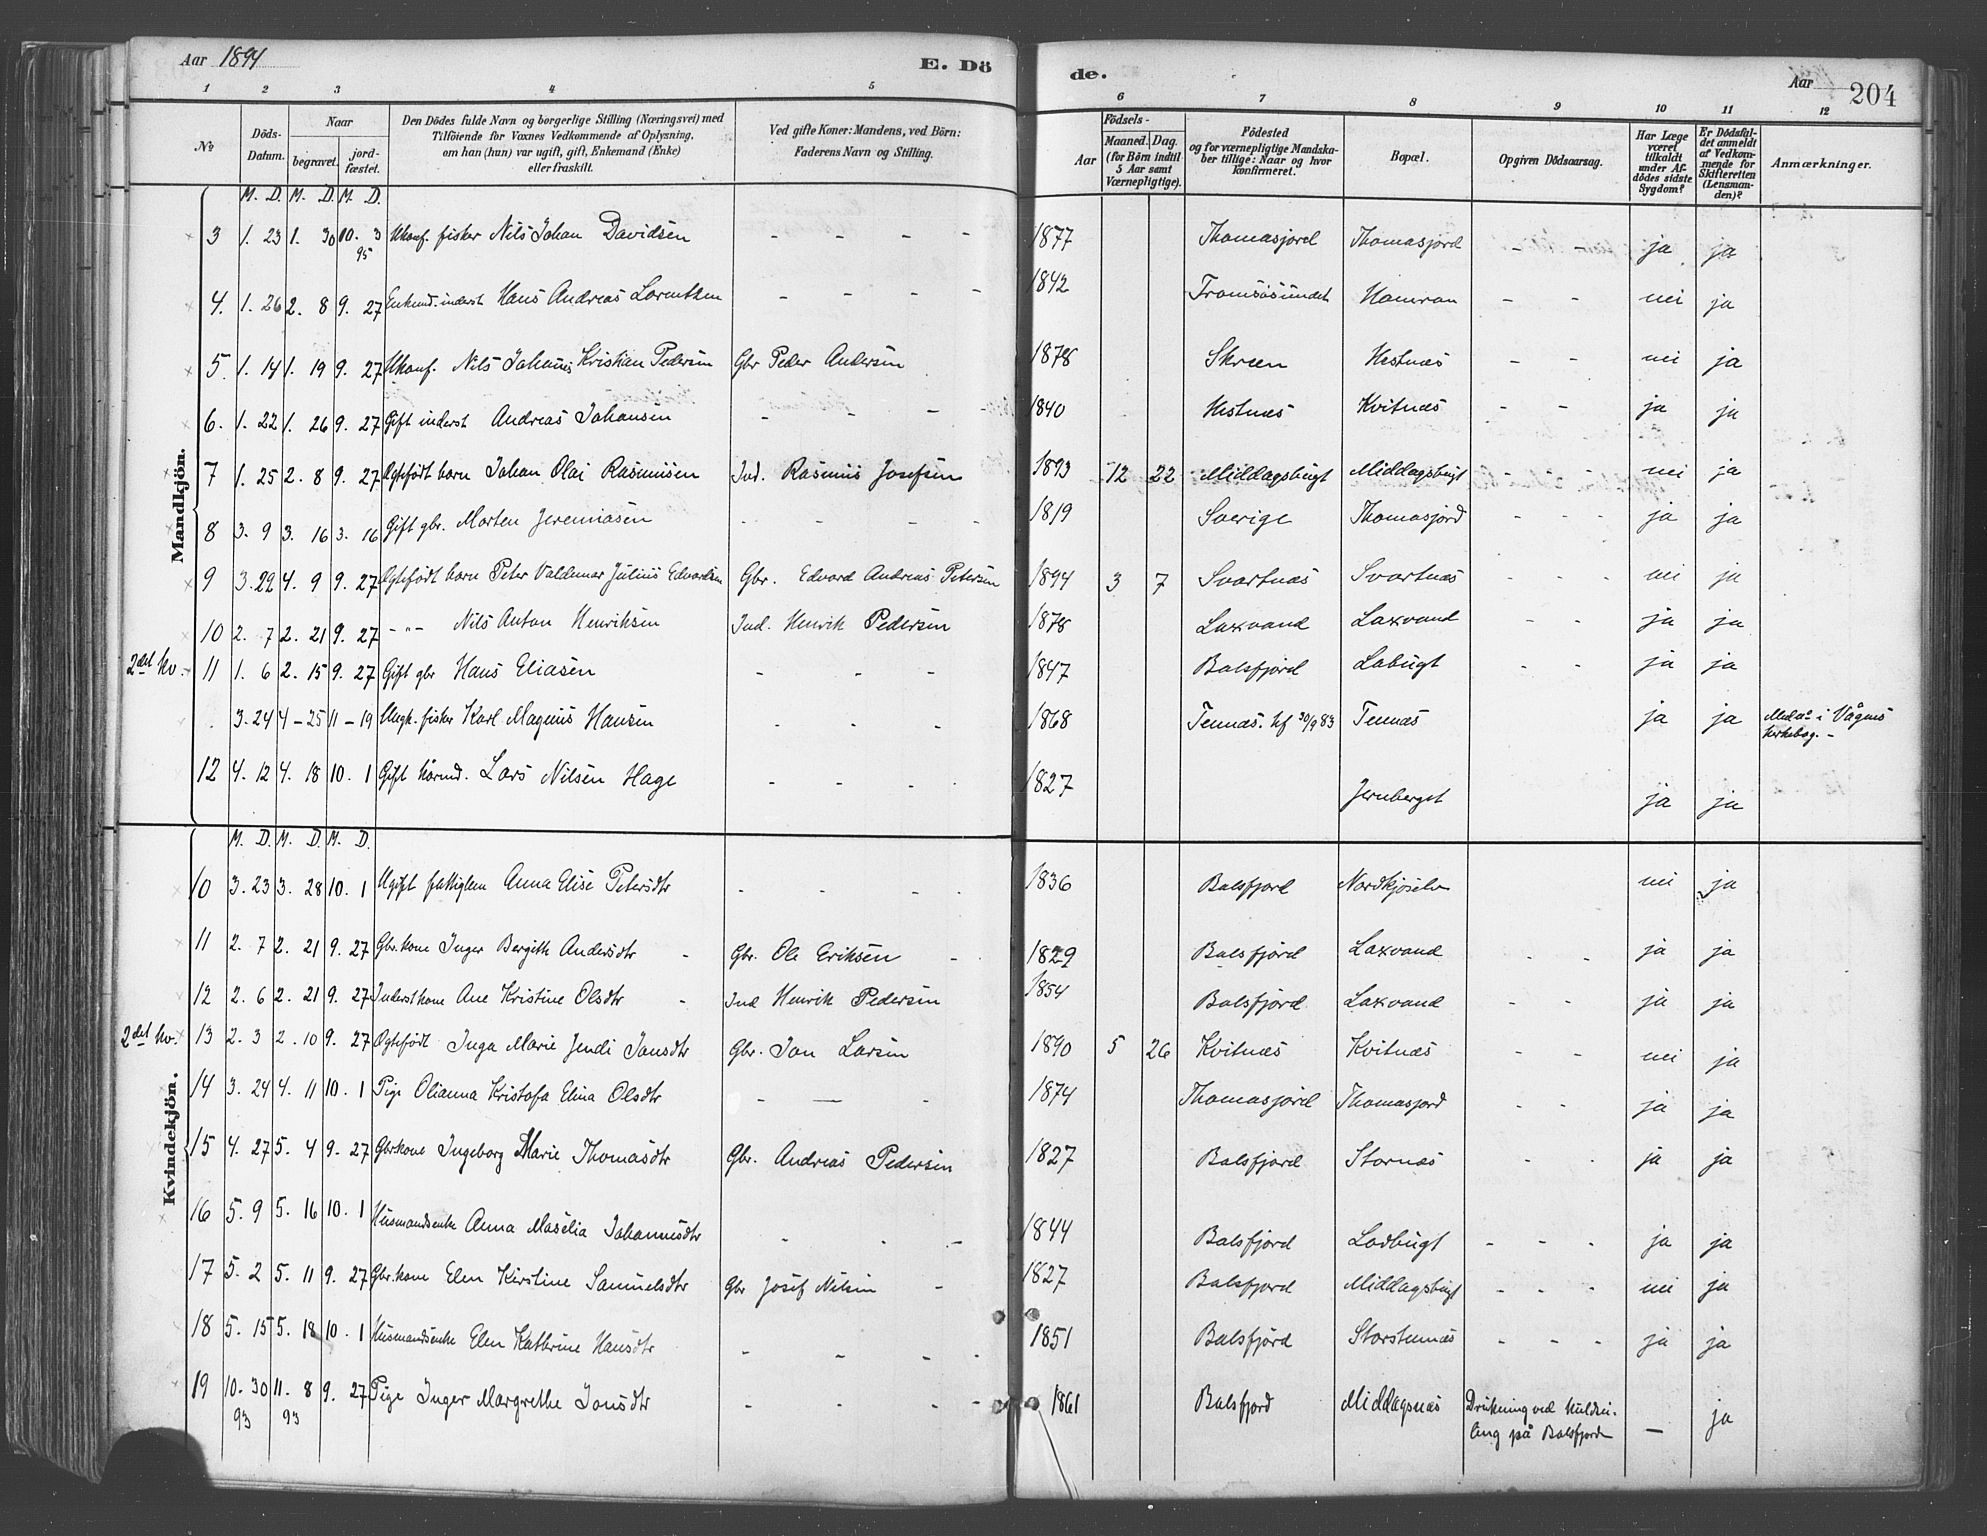 Aar 1894 E. Dö de. Aar 204
1 2 3 4 5 6 7 8 9 10 11 12
№ Döds-Datum. Naar begravet. jord-fæstet. Den Dödes fulde Navn og borgerlige Stilling (Næringsvei) med Tilföiende for Voxnes Vedkommende af Oplysning, om han (hun) var ugift, gift, Enkemand (Enke) eller fraskilt. Ved gifte Koner: Mandens, ved Börn: Faderens Navn og Stilling. Födsels- Aar Maaned. Dag. (for Börn indtil 5 Aar samt Værnepligtige). Födested og for værnepligtige Mandskaber tillige: Naar og hvor konfirmeret. Bopæl. Opgiven Dödsaarsag. Har Læge været tilkaldt under Afdödes sidste Sygdom? Er Dödsfaldet anmeldt af Vedkommende for Skifteretten (Lensmanden)? Anmærkninger.
Mandkjön.
M. D. M. D. M. D.
3 1. 23 1. 30 10. 3 95 Ukonf. fisker Nils Johan Davidsen - - - - 1877 Thomasjord Thomasjord - - ja ja
4. 1. 26 2. 8 9. 27 Enkemd. inderst Hans Andreas Lorentzen - - - - 1842 Tromsösundet Hamran - - nei ja
5. 1. 14 1. 19 9. 27 Ukonf. Nils Johannes Kristian Pedersen Gbr Peder Andersen 1878 Skreen Hestnæs - - nei ja
6. 1. 22 1. 26 9. 27 Gift inderst Andreas Johansen - - - - 1840 Hestnæs Kvitnæs - - ja ja
7 1. 25 2. 8 9. 27 Ogtefödt barn Johan Olai Rasmussen Ind. Rasmus Josefsen 1893 12 22 Middagsbugt Middagsbugt - - nei ja
8 3. 9 3. 16 3. 16 Gift gbr. Morten Jeremiasen - - - - 1819 Sverige Thomasjord - - - ja ja
9 3. 29 4. 9 9. 27 Ogtefödt barn Peter Valdemar Julius Edvardsen Gbr. Edvard Andreas Petersen 1894 3 7 Svartnæs Svartnæs - - - nei ja
10 2. 7 2. 21 9. 27 - " - Nils Anton Henriksen Ind. Henrik Pedersen 1878 Laxvand Laxvand ja ja
2det kv. 11 1. 6 2. 15 9. 27 Gift gbr Hans Eliasen - - - 1847 Balsfjord Labugt - - ja ja
3. 24 4 - 25 11 - 19 Ungk. fisker Karl Magnus Hansen - - - 1868 Tennæs. kf 30/9 83 Tennæs ja ja Meda- i Vågnes kirkebog. -
12 4. 12 4. 18 10. 1 Gift kårmd. Lars Nilsen Hage - - - 1827 Jernberget ja ja
Kvindekjön.
M. D. M. D. M. D.
10 3. 23 3. 28 10. 1 Ugift fattiglem Anna Elise Petersdtr - - - - 1836 Balsfjord Nordkjoselv nei ja
11 2. 7 2. 21 9. 27 Gbr.kone Inger Bergith Andersdtr - Gbr. Ole Eriksen - 1829 Balsfjord Laxvand - - ja ja
12 2. 6 2. 21 9. 27 Inderstkone Ane Kristine Olsdtr - Ind Henrik Pedersen 1854 Balsfjord Laxvand - - ja ja
2det kv. 13 2. 3 2. 10 9. 27 Ogtefödt Inga Marie Jendi Jonsdtr Gbr. Jon Larsen 1890 5 26 Kvitnæs Kvitnæs - - nei ja
14 3. 24 4. 11 10. 1 Pige Olianna Kristofa Elina Olsdtr - - - 1874 Thomasjord Thomasjord - - ja ja
15 4. 27 5. 4 9. 27 Gbrkone Ingeborg Marie Thomasdtr Gbr. Andreas Pedersen 1827 Balsfjord Stornæs - - ja ja
16 5. 9 5. 16 10. 1 Husmandsenke Anna Maselia Johannesdtr - - - 1844 Balsfjord Ladbugt - - - ja ja
17 5. 2 5. 11 9. 27 Gbr.kone Elen Kirstine Samuelsdtr Gbr Josef Nilsen - 1827 Balsfjord Middagsbugt - - - nei ja
18 5. 15 5. 18 10. 1 Husmandsenke Elen Kathrine Hansdtr - - - - 1851 Balsfjord Storstennæs - - - ja ja
19 10. 30 93 11. 8 93 9. 27 Pige Inger Margrethe Jonsdtr - - - - 1861 Balsfjord Middagsnæs Drukning ved kuldseiling på Balsfjorden - ja